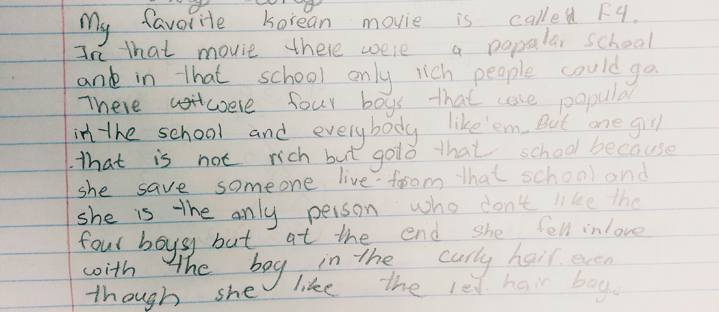 My favorite korean movie is called F4.
In that movie there were a popalar school
and in that school only rich people could go.
There were four boys that are popular
in the school and everybody like'em. But one girl
that is not rich but goto that school because
she save someone live from that school and
she is the only person who don't like the
four boys, but at the end she fell inlove
with the boy in the curly hair. even
though she like the red hair boy.